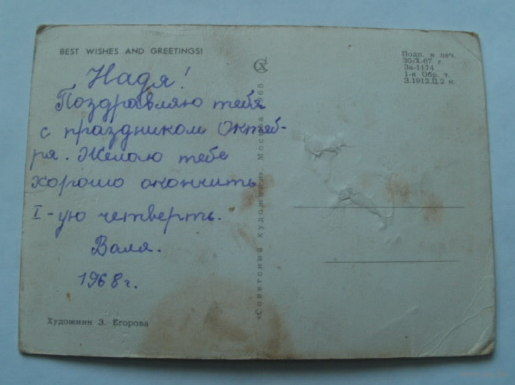 BEST WISHES AND GREETINGS!
Надя!
Поздравляю тебя
с праздником Октяб-
ря. Желаю тебе
хорошо окончить
I-ую четверть.
Валя.
1968 г.
Художник З. Егорова
«Советский художник» Москва 1968
Подп. к печ.
30/X-67 г.
Зк-1174
1-я Обр. т.
З.1912.Ц.2 к.